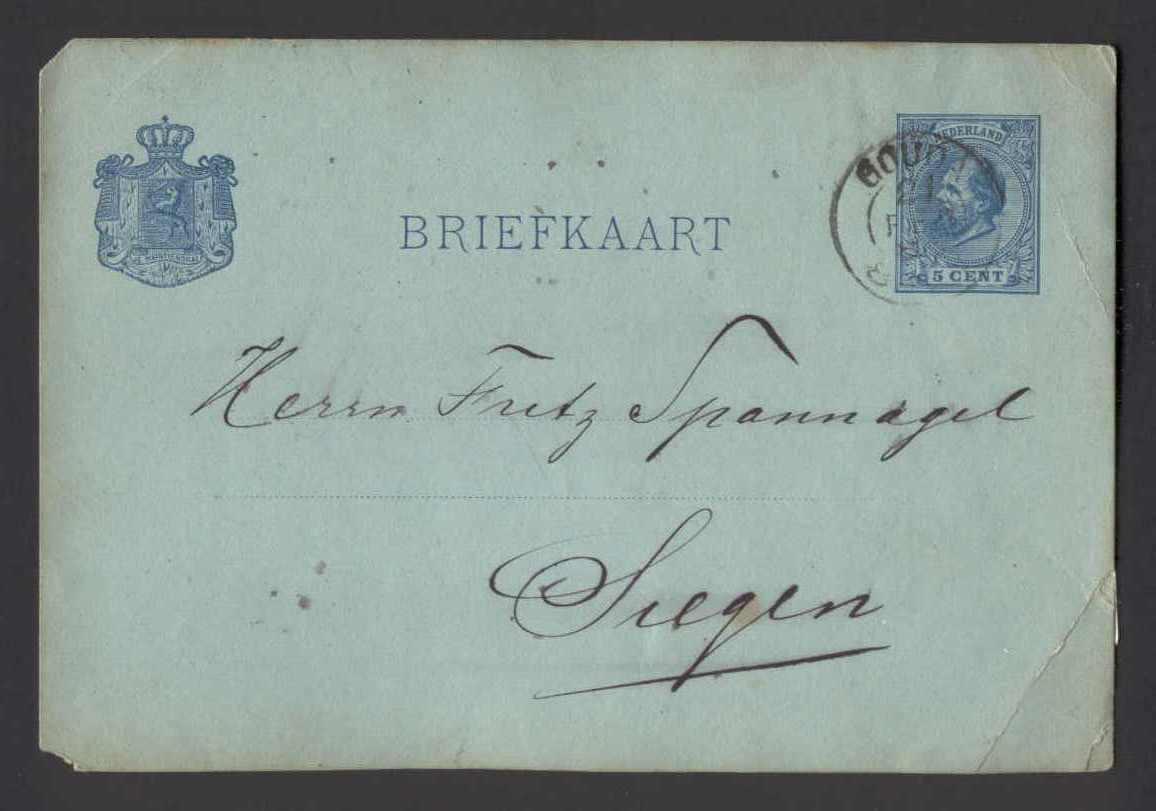 NEDERLAND
GOUDA
5 CENT
BRIEFKAART
JE MAINTIENDRAI
Herrn Fritz Spannagel
Siegen